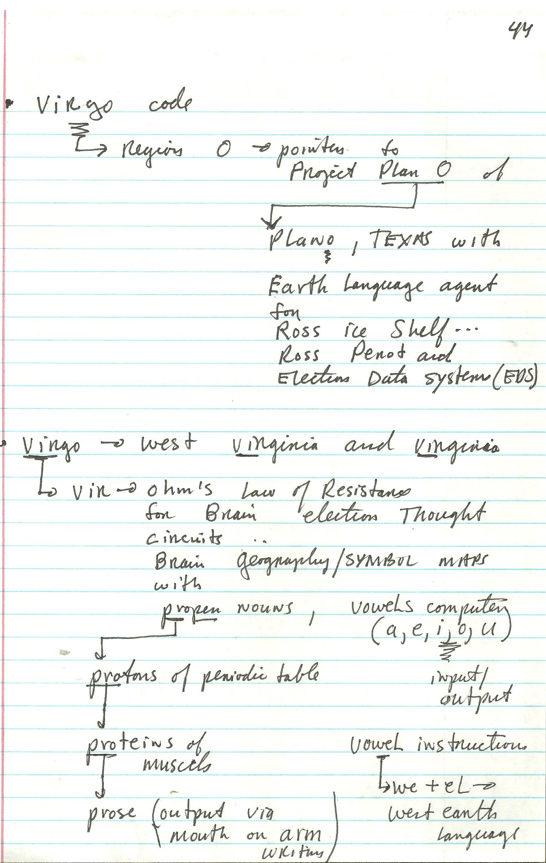 44
• Virgo code
Region O → pointers to
Project Plan O of
Plano, TEXAS with
Earth Language agent
for
Ross ice Shelf...
Ross Perot and
Election Data Systems (EDS)
• Virgo → west Virginia and Virginia
Vir → ohm's Law of Resistance
for Brain election Thought
circuits ..
Brain geography/SYMBOL MAPS
with
proper nouns, vowels computer
(a, e, i, o, u)
protons of periodic table input/
output
proteins of vowel instructions
muscels
we + eL →
prose (output via west earth
mouth or arm language
writing)